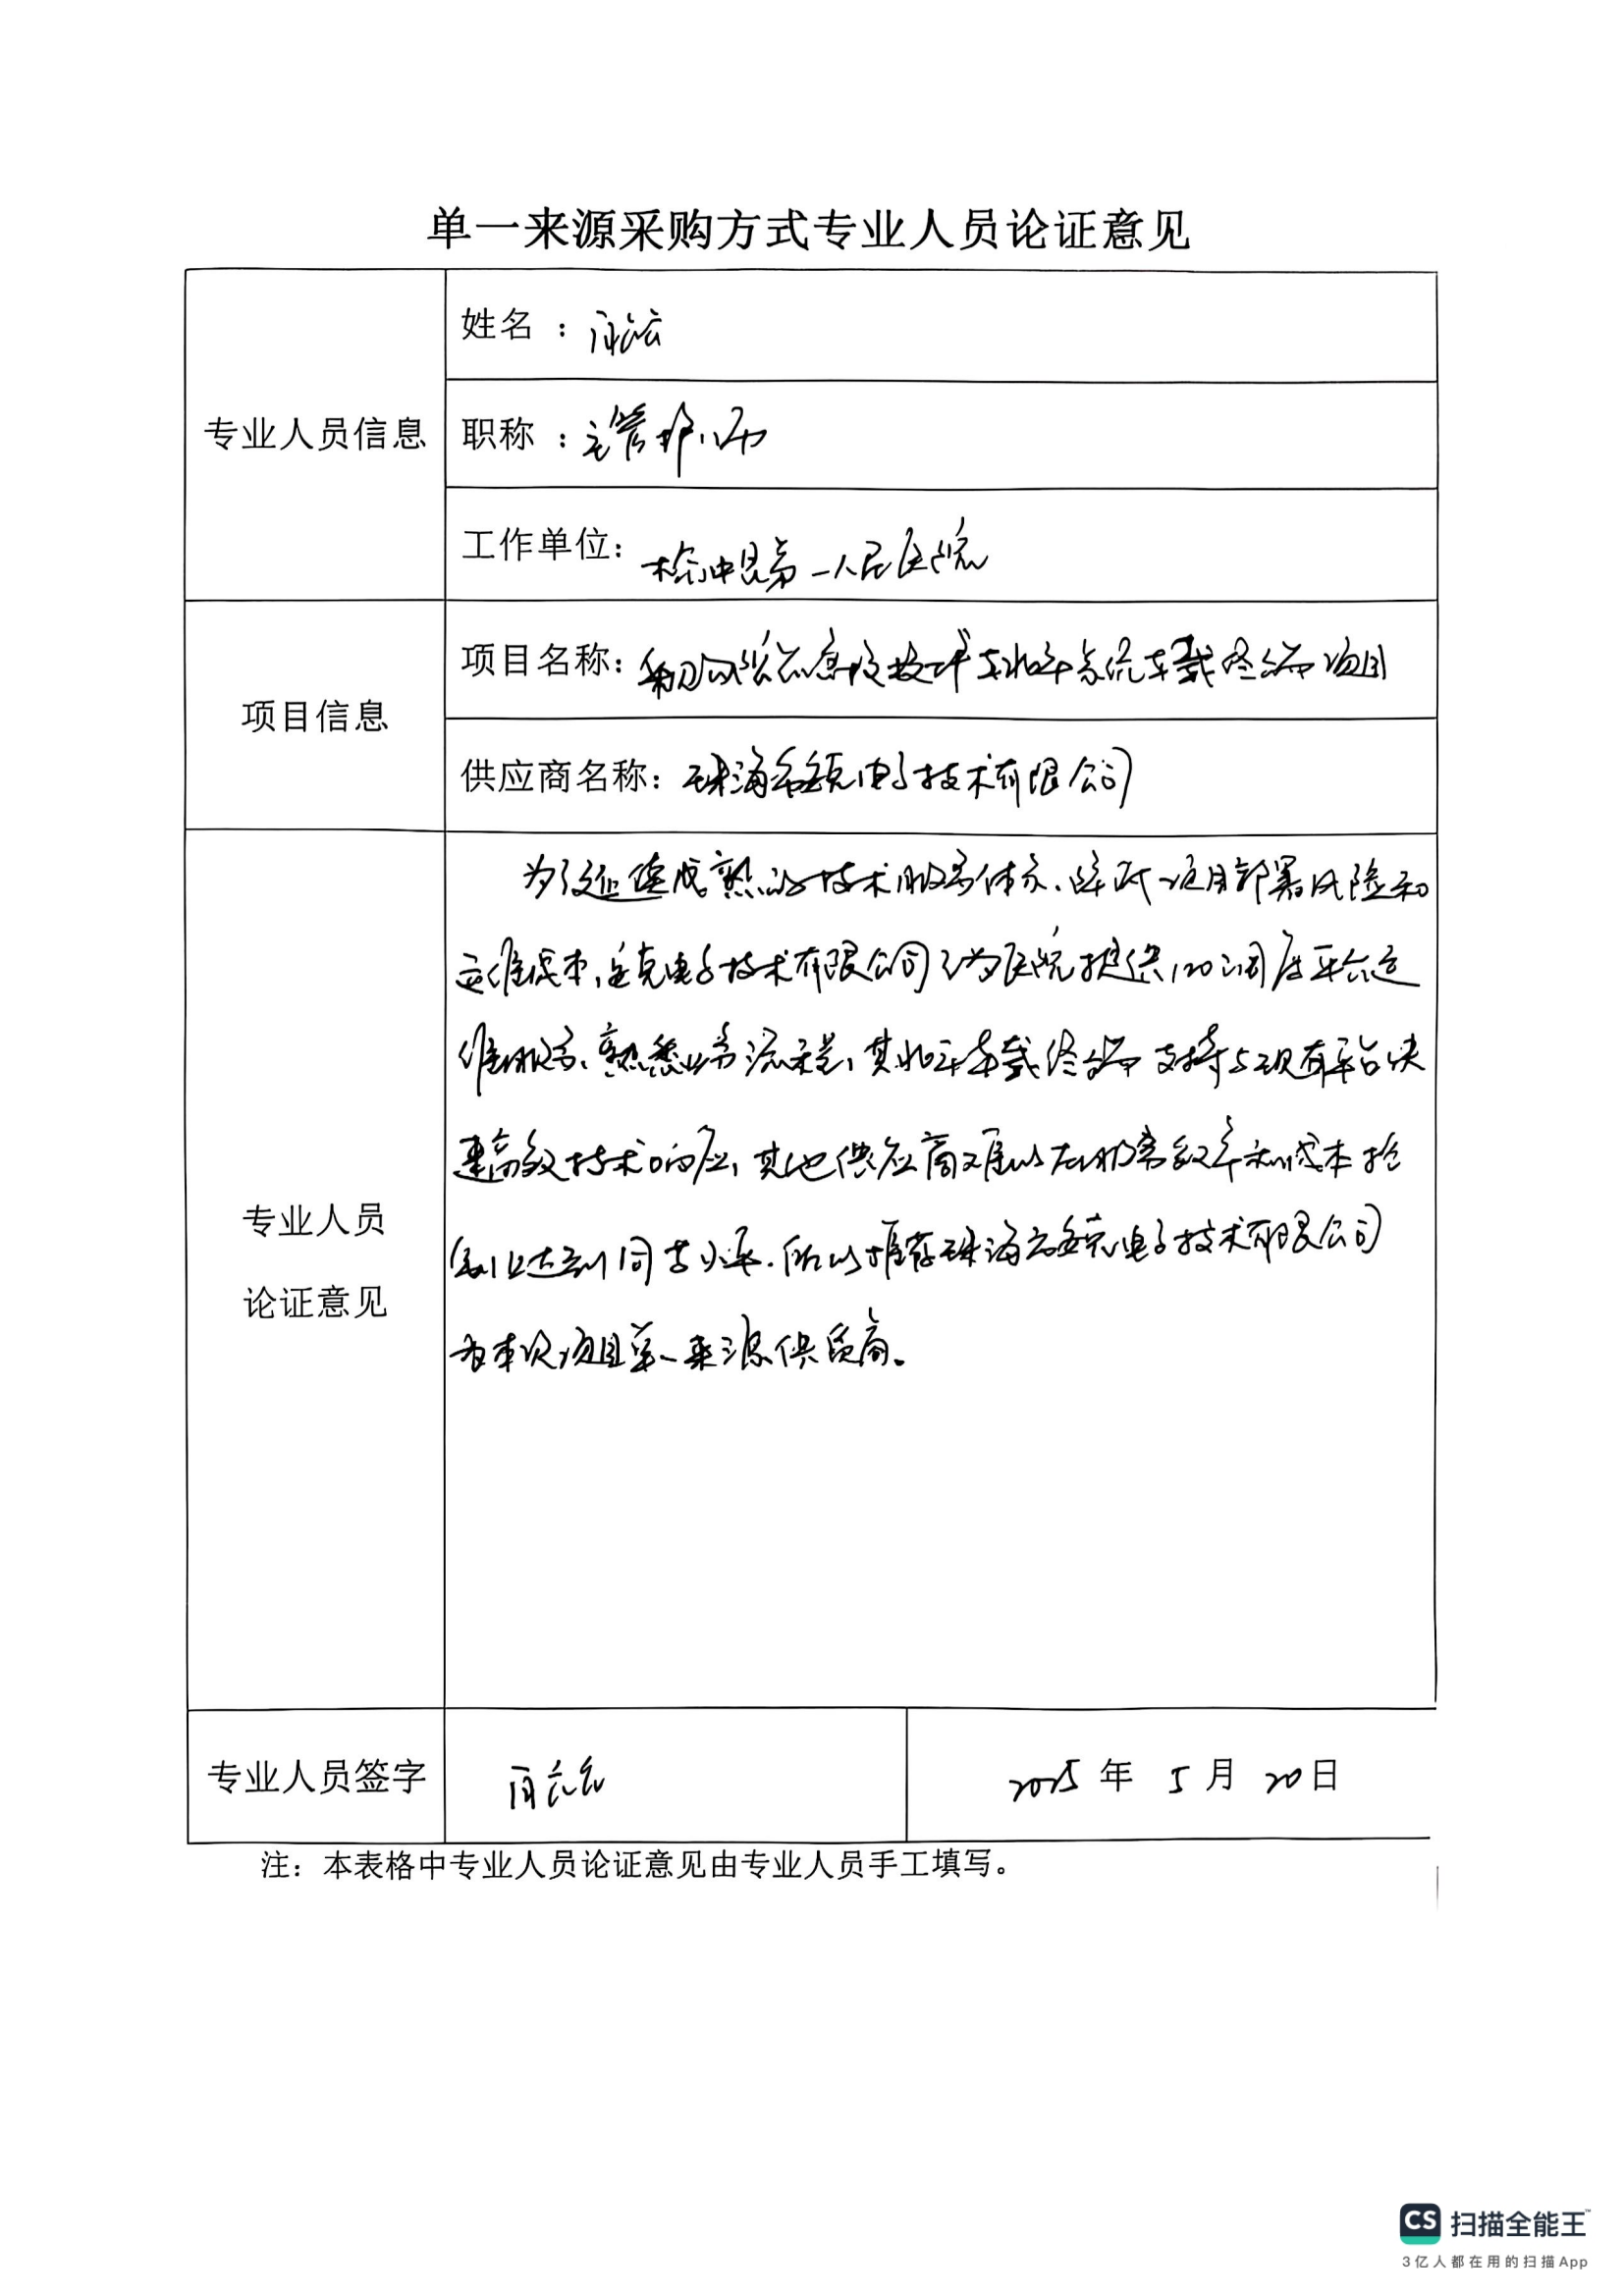 单一来源采购方式专业人员论证意见
专业人员信息
姓名：
职称：主管护师
工作单位：榆中县第一人民医院
项目信息
项目名称：车载终端项目
供应商名称：珠海 电子技术有限公司
专业人员
论证意见
为了延续成熟的技术服务体系、降低应用部署风险和
运维成本，克电子技术有限公司已为医院提供120调度平台运
维服务、熟悉业务流程，其北斗车载终端支持与现有平台快
速高效技术响应，其他供应商难以在服务效率和成本控
制上达到同等水平.所以推荐珠海 电子技术有限公司
为本次项目单一来源供货商。
专业人员签字
2025年 5月 20日
注：本表格中专业人员论证意见由专业人员手工填写。
CS 扫描全能王
3亿人都在用的扫描App